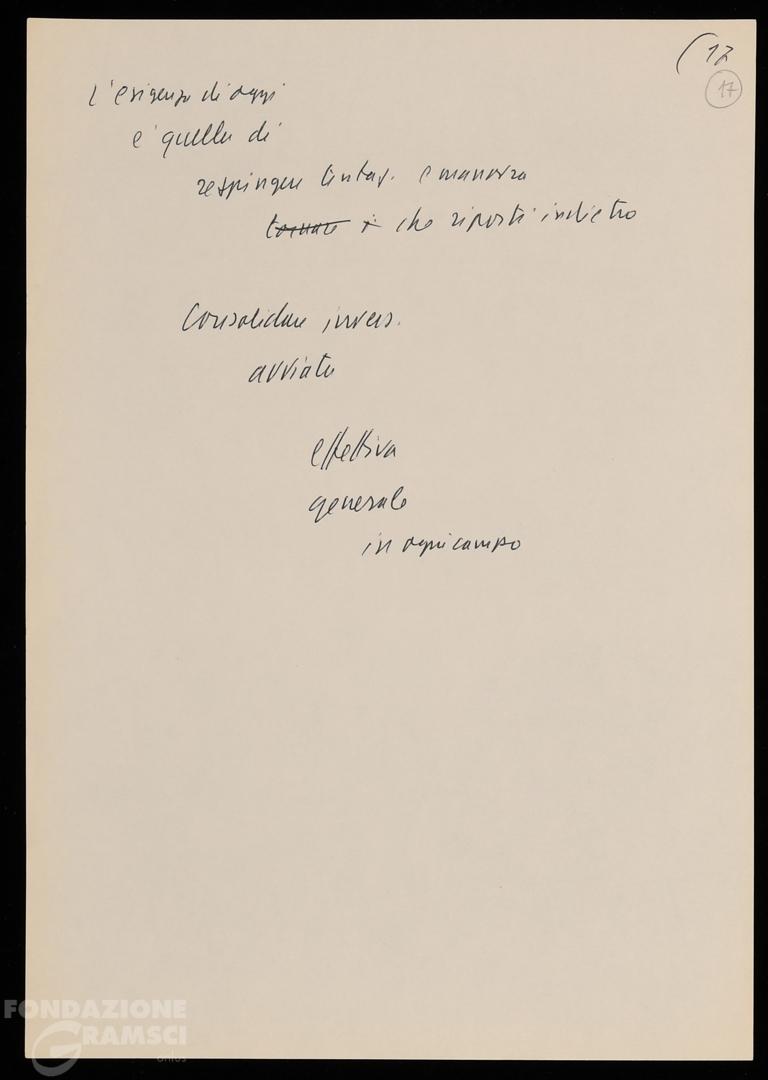 (17
17
L'esigenza di oggi
e' quella di
respingere tentat. e manovra
tornare i che riporti indietro
Consolidare invers.
avviata
effettiva
generale
in ogni campo
FONDAZIONE
GRAMSCI
onlus